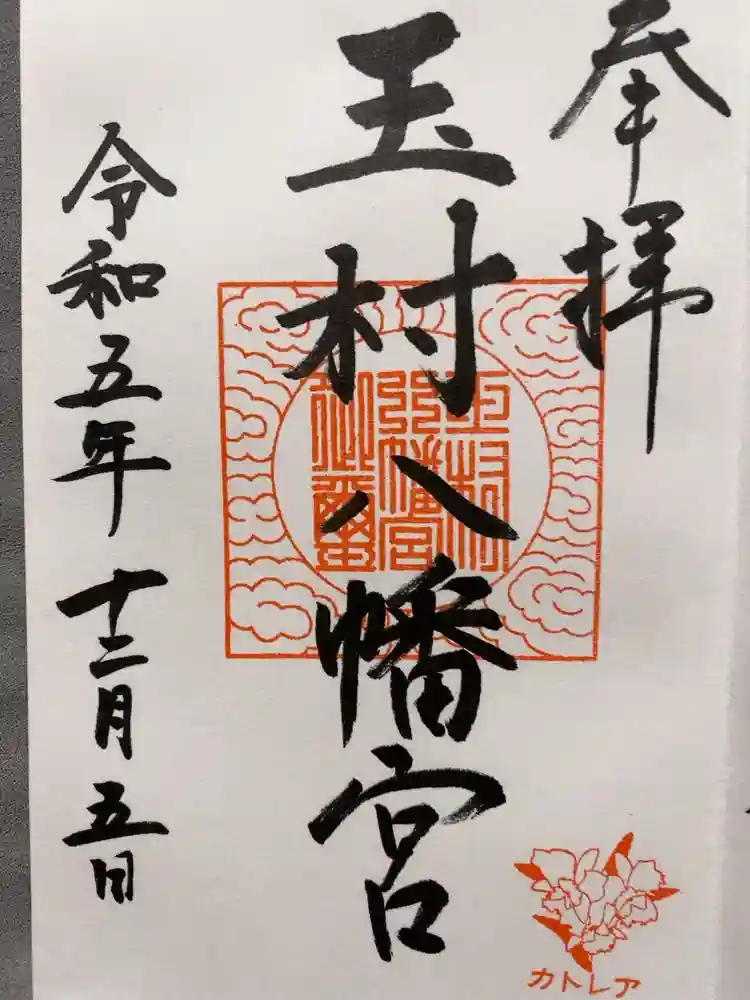 奉拝
玉村八幡宮
令和五年十二月五日
玉村
八幡宮
御璽
カトレア